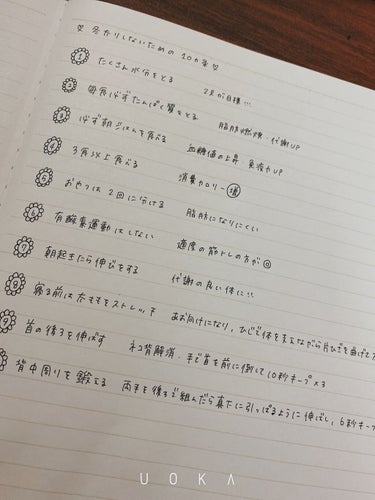 ♡ 冬太りしないための 10か条 ♡
1 たくさん水分をとる 2Lが目標!!!
2 毎食必ずたんぱく質をとる 脂肪燃焼・代謝UP
3 必ず朝ごはんを食べる 血糖値の上昇・免疫力UP
4 3食以上食べる 消費カロリー増
5 おやつは2回に分ける 脂肪になりにくい
6 有酸素運動はしない 適度の筋トレの方が◎
7 朝起きたら伸びをする 代謝の良い体に!!
8 寝る前は太ももをストレッチ あお向けになり、ひじで体を支えながら片ひざを曲げ
9 首の後ろを伸ばす ネコ背解消・手で首を前に倒して10秒キープ×3
背中周りを鍛える 両手を後ろで組んだら真下に引っぱるように伸ばし、6秒キープ
UOKA